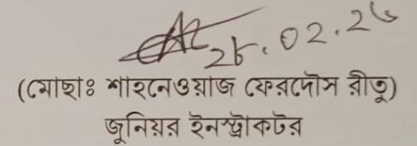 (মোছাঃ শাহনেওয়াজ ফেরদৌস রীতু)
জুনিয়র ইনস্ট্রাকটর